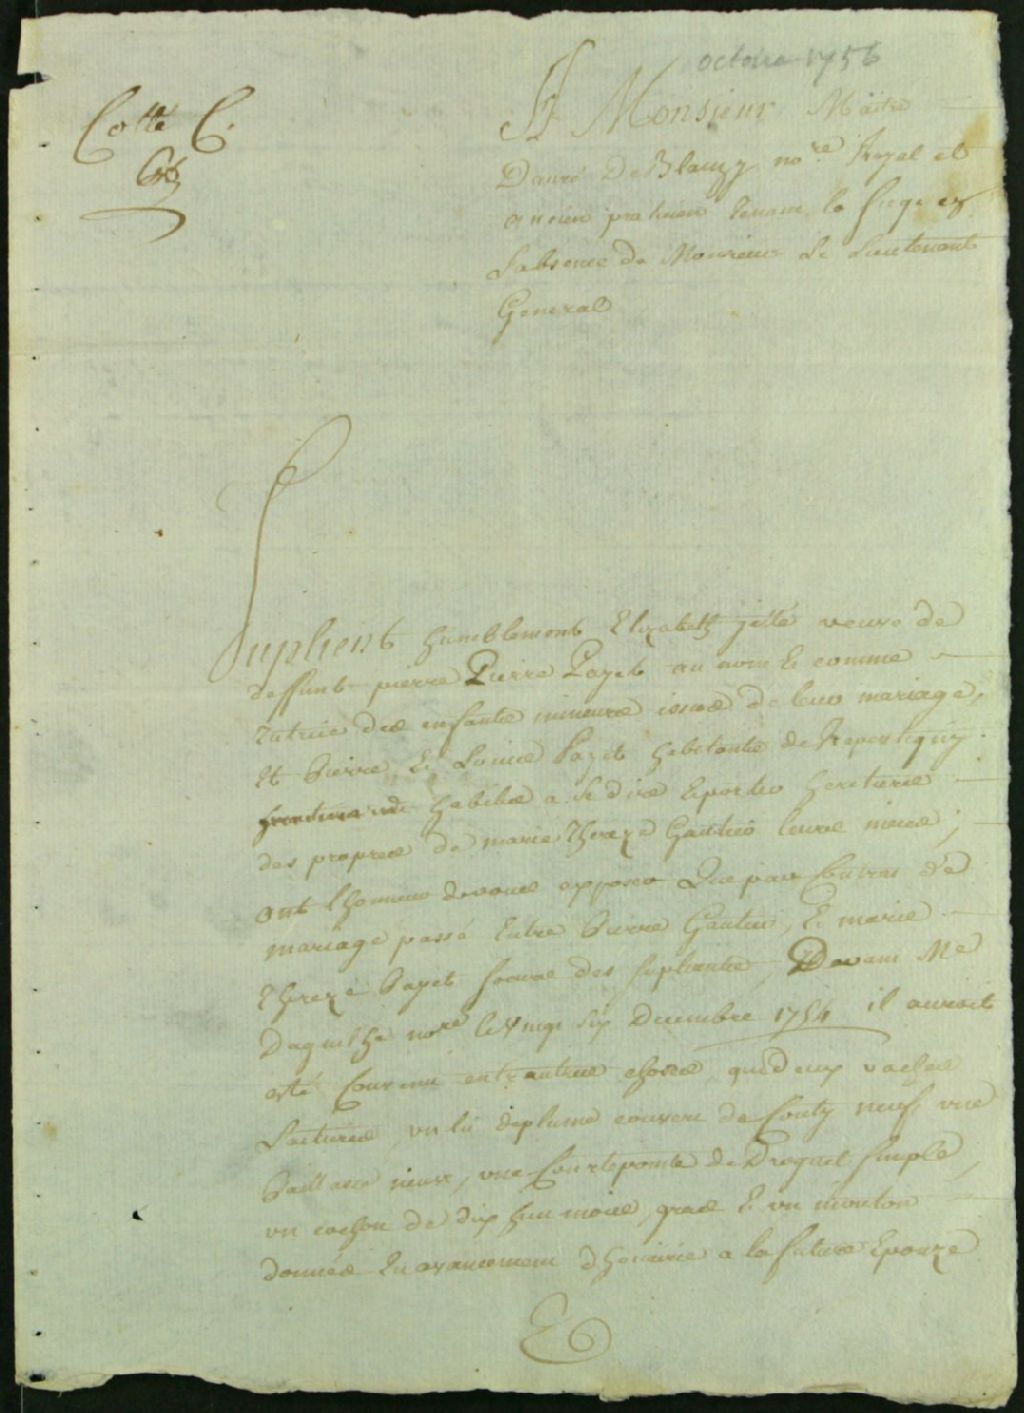 octobre 1756
Cotté C.
A Monsieur Maitre
Danré DeBlanzy nore Royal et
ancien praticien tenant le siege en
Labsence de Monsieur Le Lieutenant
General
Suplient humblement Elizabeth jetté veuve de
deffunt pierre Pierre Payet au nom & comme
Tutrice des enfants mineurs issues de leur mariage,
Et Pierre, & Louise Payet habitants de Repentigny
habiles a se dire & porter heritiers
des propres de marie Thereze Gautier leurs niece;
ont lhonneur devous exposer Que par Contrat de
mariage passé Entre Pierre Gautier, & marie
Thereze Payet soeur des supliants, Devant Me
Daguilhe nore le vingt six Decembre 1754 il auroit
esté Convenu entrautres choses, que deux vaches
Laitieres, un lit deplume couvert de Couty neuf, une
Paillasse neuve, une Courtepointe de Droguet simple,
un cochon de dix huit mois, gras & un mouton
donnés En avancement dhoirie a la future Epouze
E